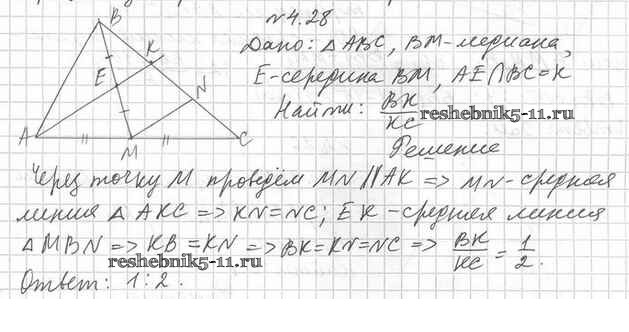 №4.28
Дано: △ABC, BM-медиана,
E-середина BM, AE∩BC=K
Найти: BK/KC
reshebnik5-11.ru
Решение
B
K
E
N
A
M
C
Через точку M проведём MN∥AK => MN-средняя
линия △AKC => KN=NC; EK-средняя линия
△MBN => KB=KN => BK=KN=NC => BK/KC = 1/2.
reshebnik5-11.ru
Ответ: 1:2.